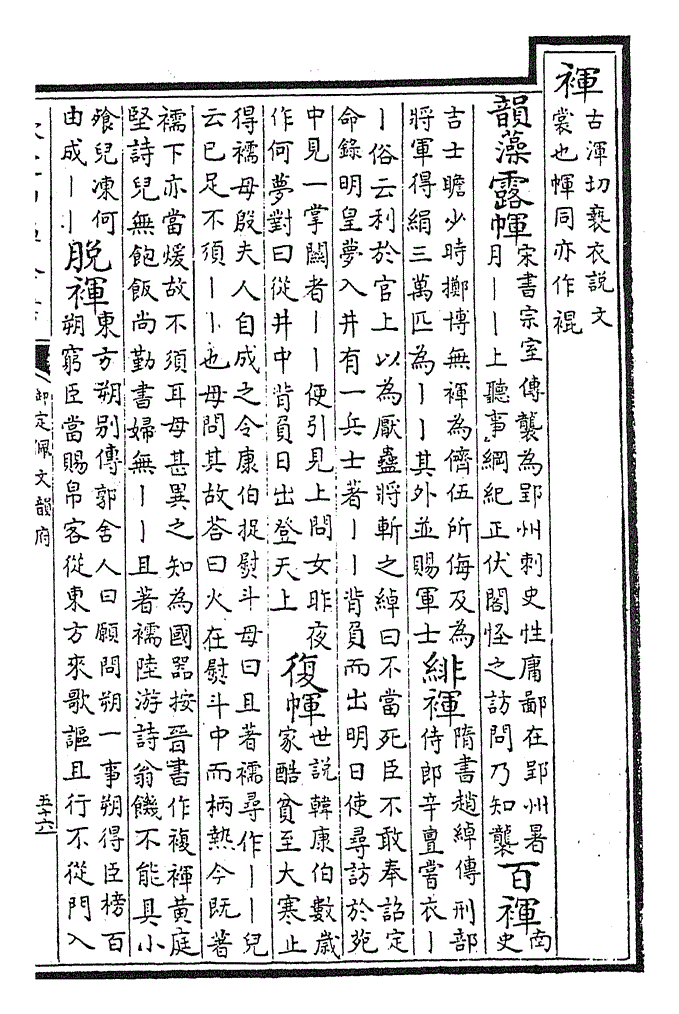 褌
古渾切褻衣說文
裳也㡓同亦作裩
韻藻露㡓
宋書宗室傳襲為郢州刺史性庸鄙在郢州暑
月｜｜上聽事綱紀正伏閤怪之訪問乃知襲
百褌
南
史
吉士瞻少時擲博無褌為儕伍所侮及為
將軍得絹三萬匹為｜｜其外並賜軍士
緋褌
隋書趙綽傳刑部
侍郎辛亶嘗衣｜
｜俗云利於官上以為厭蠱將斬之綽曰不當死臣不敢奉詔定
命錄明皇夢入井有一兵士著｜｜背負而出明日使尋訪於苑
中見一掌關者｜｜便引見上問女昨夜
作何夢對曰從井中背負日出登天上
復㡓
世說韓康伯數歲
家酷貧至大寒止
得襦母殷夫人自成之令康伯捉熨斗母曰且著襦尋作｜｜兒
云已足不須｜｜也母問其故荅曰火在熨斗中而柄熱今既著
襦下亦當煖故不須耳母甚異之知為國器按晉書作複褌黃庭
堅詩兒無飽飯尚勤書婦無｜｜且著襦陸游詩翁饑不能具小
飱兒凍何
由成｜｜
脫褌
東方朔別傳郭舍人曰願問朔一事朔得臣榜百
朔窮臣當賜帛客從東方來歌謳且行不從門入
御定佩文韻府
五十六